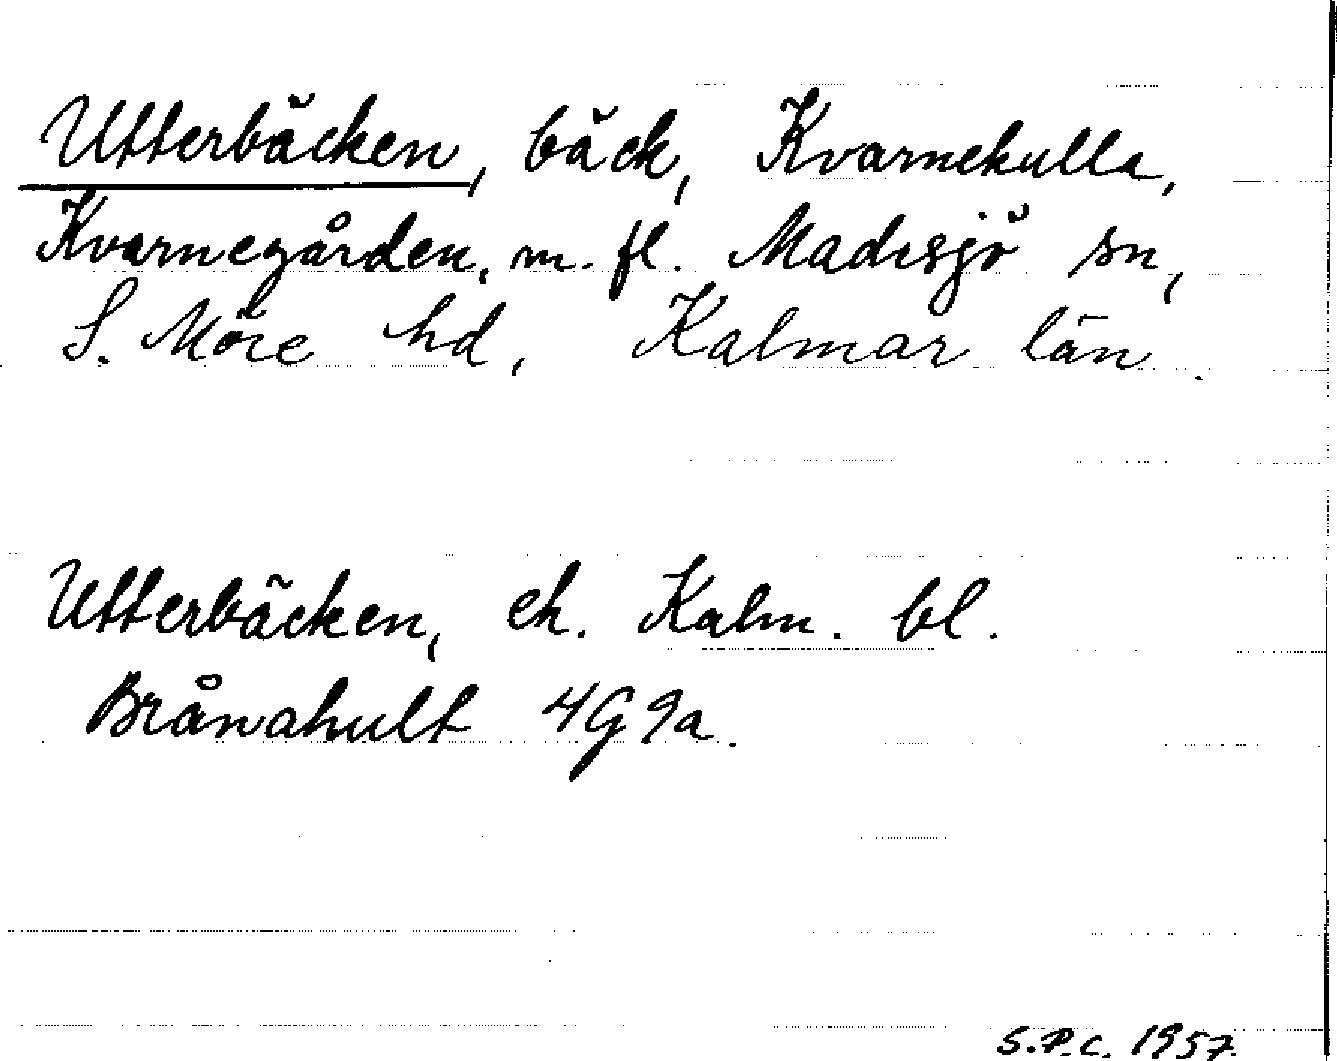 Utterbäcken, bäck, Kvarnekulla,
Kvarnegården, m. fl. Madesjö sn,
S. Möre hd, Kalmar län.
Utterbäcken, ek. Kalm. bl.
Brånahult 4G9a.
S.P.C. 1957